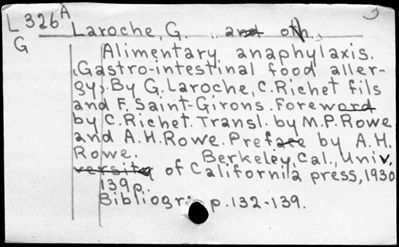 L326A
G
Laroche, G. and oth.
Alimentary anaphylaxis.
(Gastro-intestinal food aller-
gy). By G. Laroche, C. Richet fils
and F. Saint-Girons. Foreword
by C. Richet. Transl. by M.P. Rowe
and A.H. Rowe. Preface by A.H.
Rowe. Berkeley, Cal., Univ.
versity of California press, 1930
139p.
Bibliogr: p.132-139.